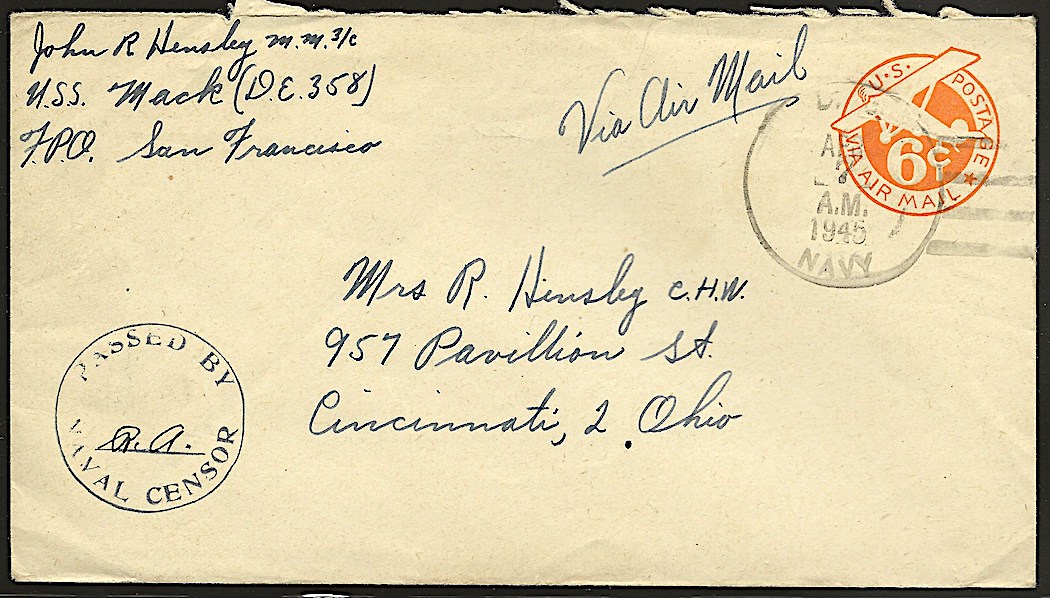 John R Hensley M.M. 3/c
U.S.S. Mack (D.E. 358)
F.P.O. San Francisco
Via Air Mail
U.S. POSTAGE
6¢
VIA AIR MAIL
A.M.
1945
NAVY
Mrs R. Hensley C.H.W.
957 Pavillion St.
Cincinnati, 2. Ohio
PASSED BY
R.A.
NAVAL CENSOR